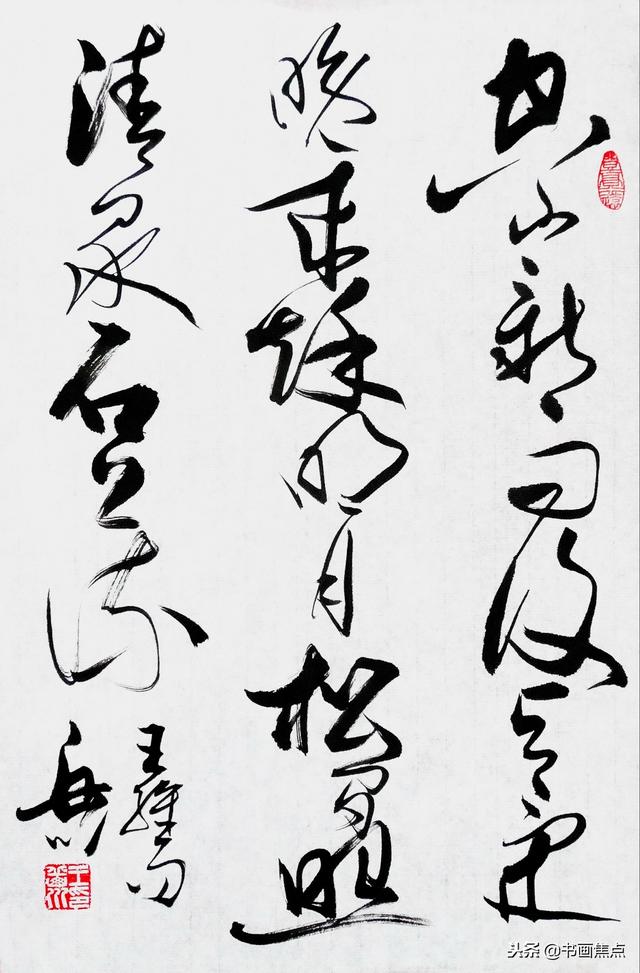 空山新雨後天氣
晚来秋明月松间照
清泉石上流
王維句
头条 @书画焦点